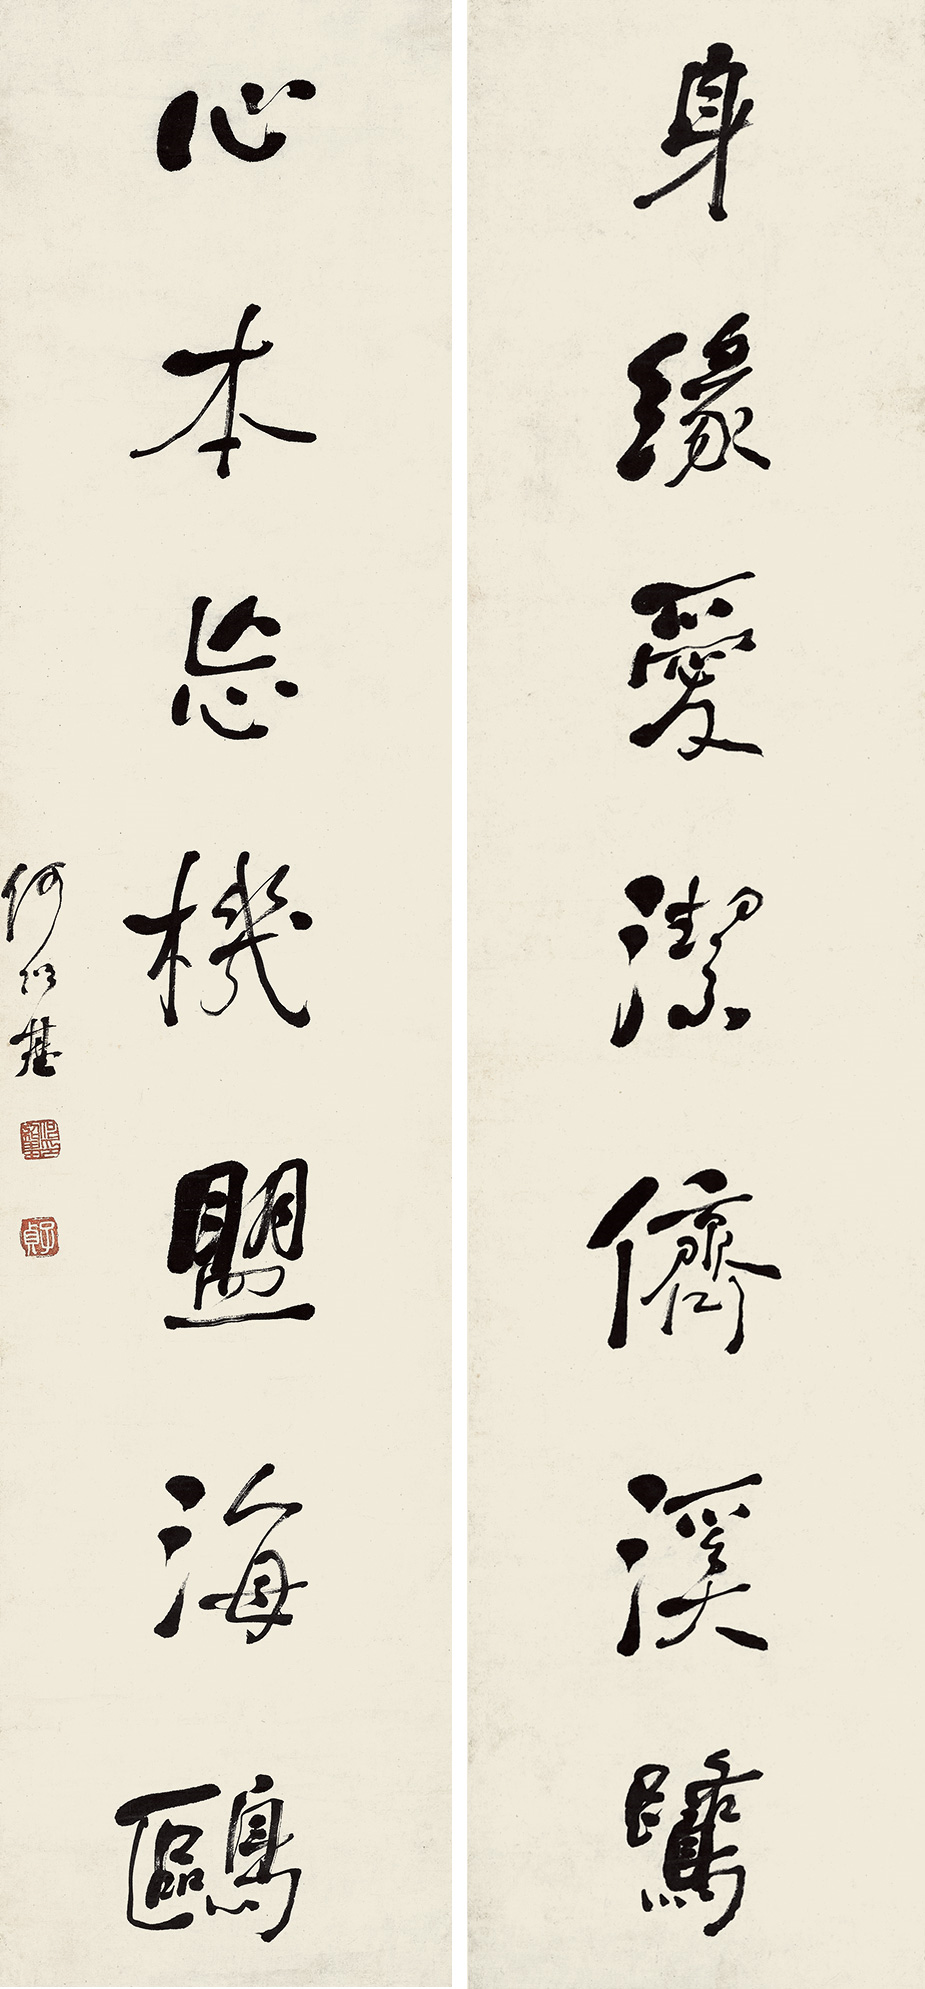 身緣愛潔儕溪鷺
心本忘機盟海鷗
何紹基
子貞